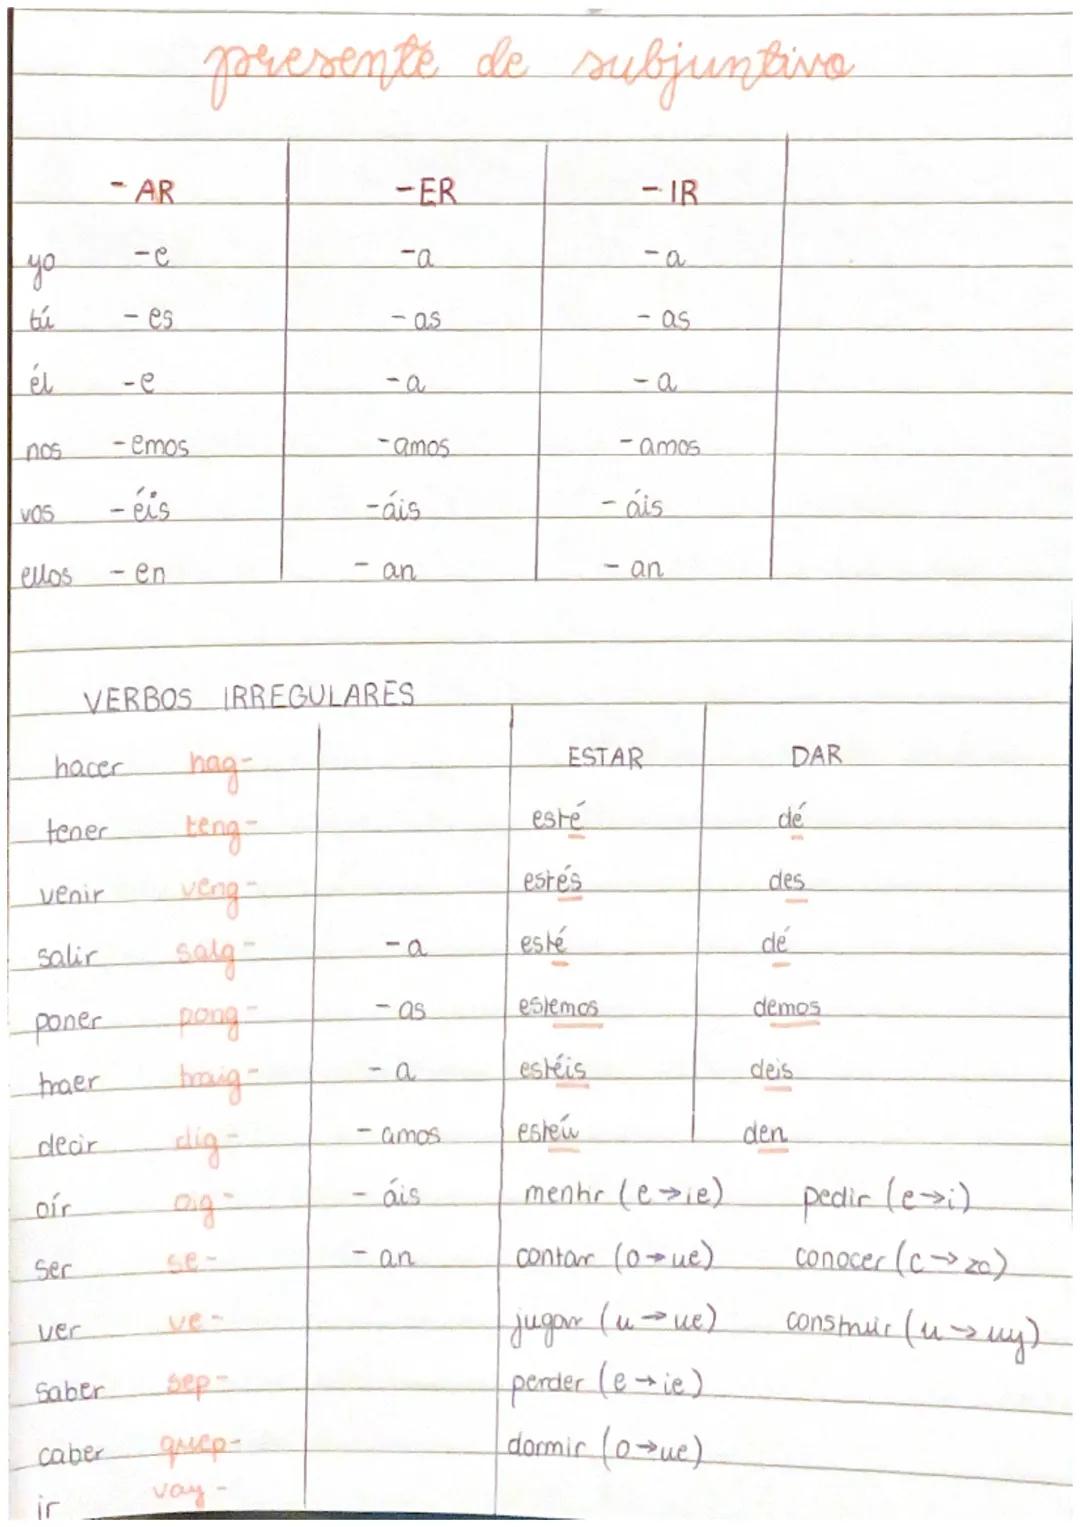 presente de subjuntivo
- AR -ER - IR
yo -e -a -a
tú - es - as - as
él -e -a -a
nos -emos -amos -amos
vos -éis -áis - áis
ellos - en - an - an
VERBOS IRREGULARES
hacer hag- ESTAR DAR
tener teng- esté dé
venir veng- estés des
salir salg- -a esté dé
poner pong- - as estemos demos
traer traig- - a estéis deis
decir dig- - amos estén den
oír oig- - áis mentir (e→ie) pedir (e→i)
ser se- - an contar (o→ue) conocer (c→zc)
ver ve- jugar (u→ue) construir (u→uy)
saber sep- perder (e→ie)
caber quep- dormir (o→ue)
ir vay-